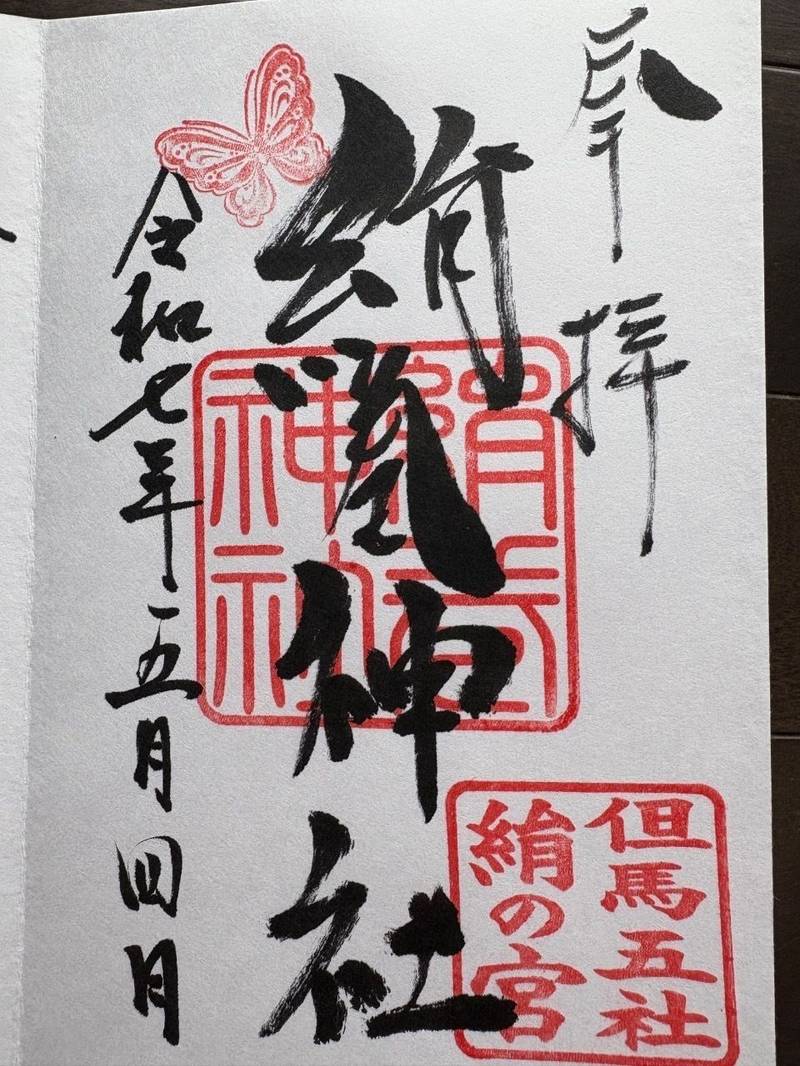 奉拝
絹巻神社
令和七年五月四日
絹巻
神社
但馬五社
絹の宮